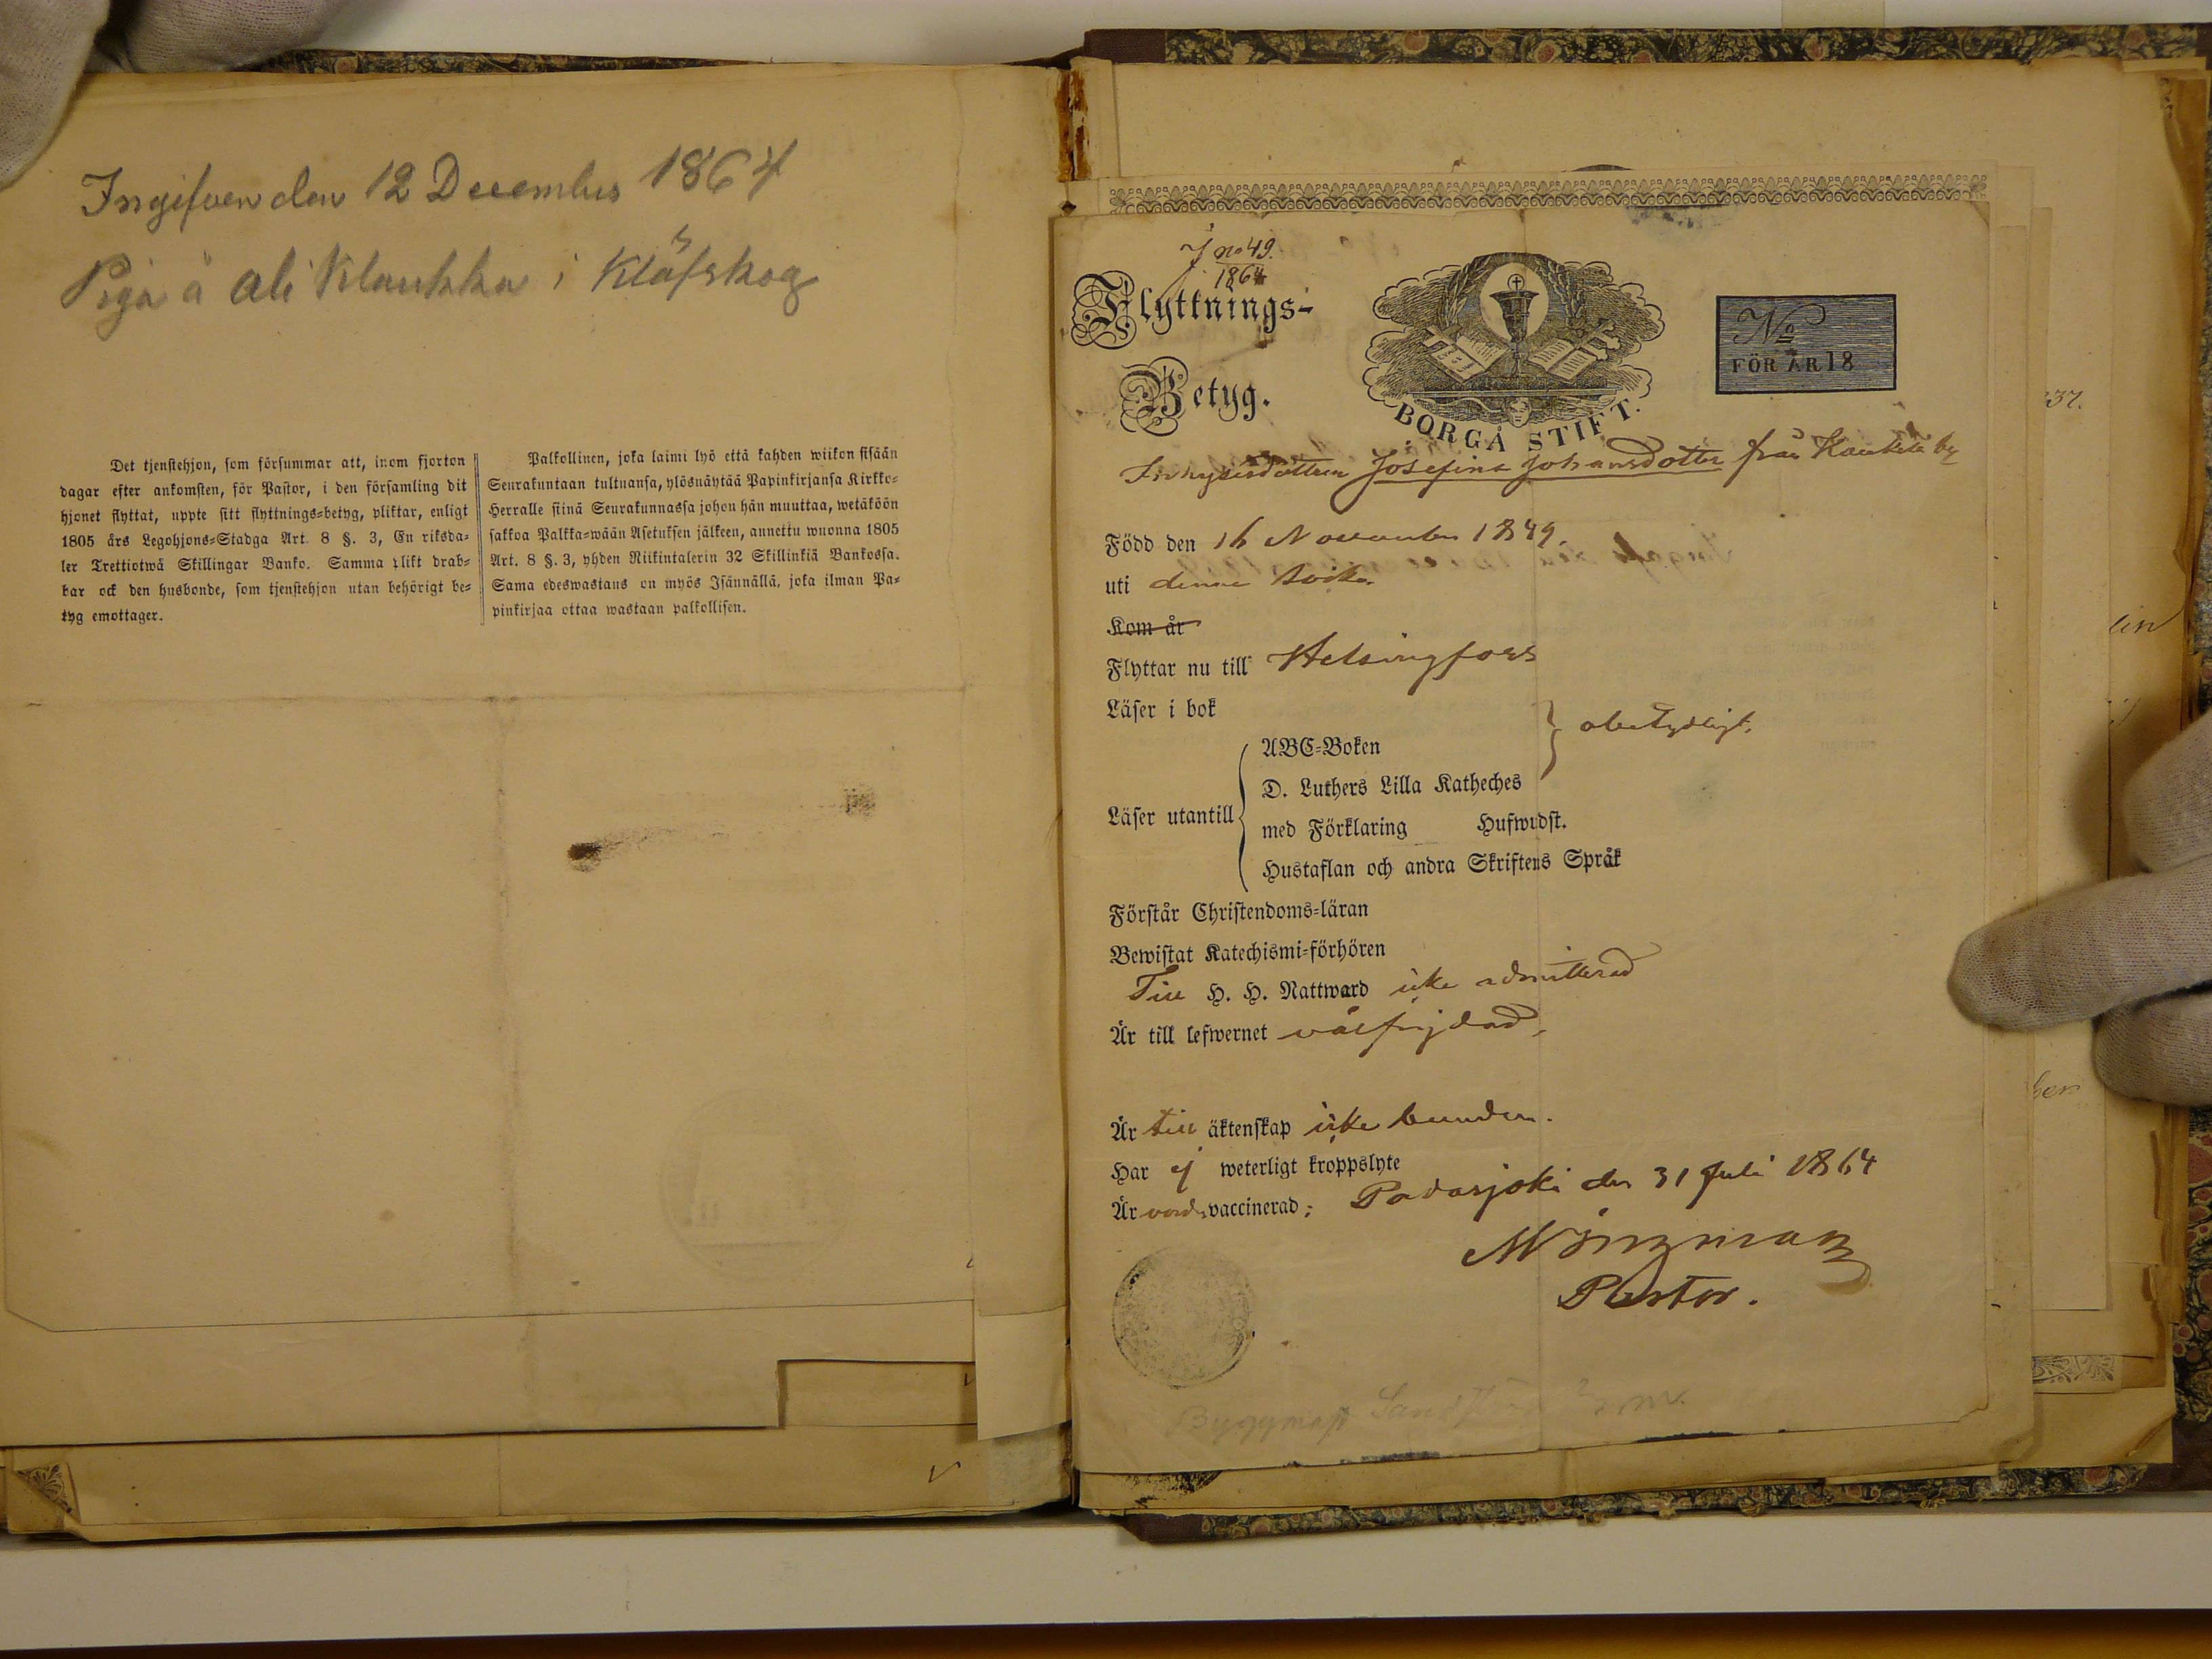 Ingifven den 12 December 1864
Piga å Ali Klaukka i Klöfskog
Det tjenstehjon, som försummar att, inom fjorton
dagar efter ankomsten, för Pastor, i den församling dit
hjonet flyttat, uppte sitt flyttnings=betyg, pliktar, enligt
1805 års Legohjons=Stadga Art. 8 §. 3, En riksda=
ler Trettiotwå Skillingar Banko. Samma plikt drab=
bar ock den husbonde, som tjenstehjon utan behörigt be=
tyg emottager.
Palkollinen, joka laimi lyö että kahden wiikon sisään
Seurakuntaan tultuansa, ylösnäytää Papinkirjansa Kirkko=
Herralle siinä Seurakunnassa johon hän muuttaa, wetäköön
sakkoa Palkka=wään Asetuksen jälkeen, annettu wuonna 1805
Art. 8 §. 3, yhden Riikintalerin 32 Skillinkiä Bankossa.
Sama edeswastaus on myös Isännällä, joka ilman Pa=
pinkirjaa ottaa wastaan palkollisen.
J no 49.
1864
Flyttnings=
Betyg.
BORGÅ STIFT.
No
FÖR ÅR 18
Inhysesdottren Josefina Johansdotter från Kaukela by
Född den 16 November 1849.
uti denna Socken
Kom år
Flyttar nu till Helsingfors
Läser i bok
Läser utantill
ABC=Boken
obetydligt.
D. Luthers Lilla Katheches
med Förklaring Hufwudst.
Hustaflan och andra Skriftens Språk
Förstår Christendoms=läran
Bewistat Katechismi=förhören
Till H. H. Nattward icke admitterad
Är till lefwernet välfrejdad,
Är till äktenskap icke bunden.
Har ej weterligt kroppslyte
Är vord. vaccinerad; Padasjoki den 31 Juli 1864
Pastor.
Byggmast
37.